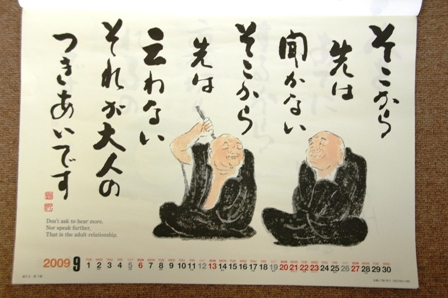 そこから
先は
聞かない
そこから
先は
言わない
それが大人の
つきあいです
Don't ask to hear more.
Nor speak further.
That is the adult relationship.
2009 9 1 2 3 4 5 6 7 8 9 10 11 12 13 14 15 16 17 18 19 20 21 22 23 24 25 26 27 28 29 30